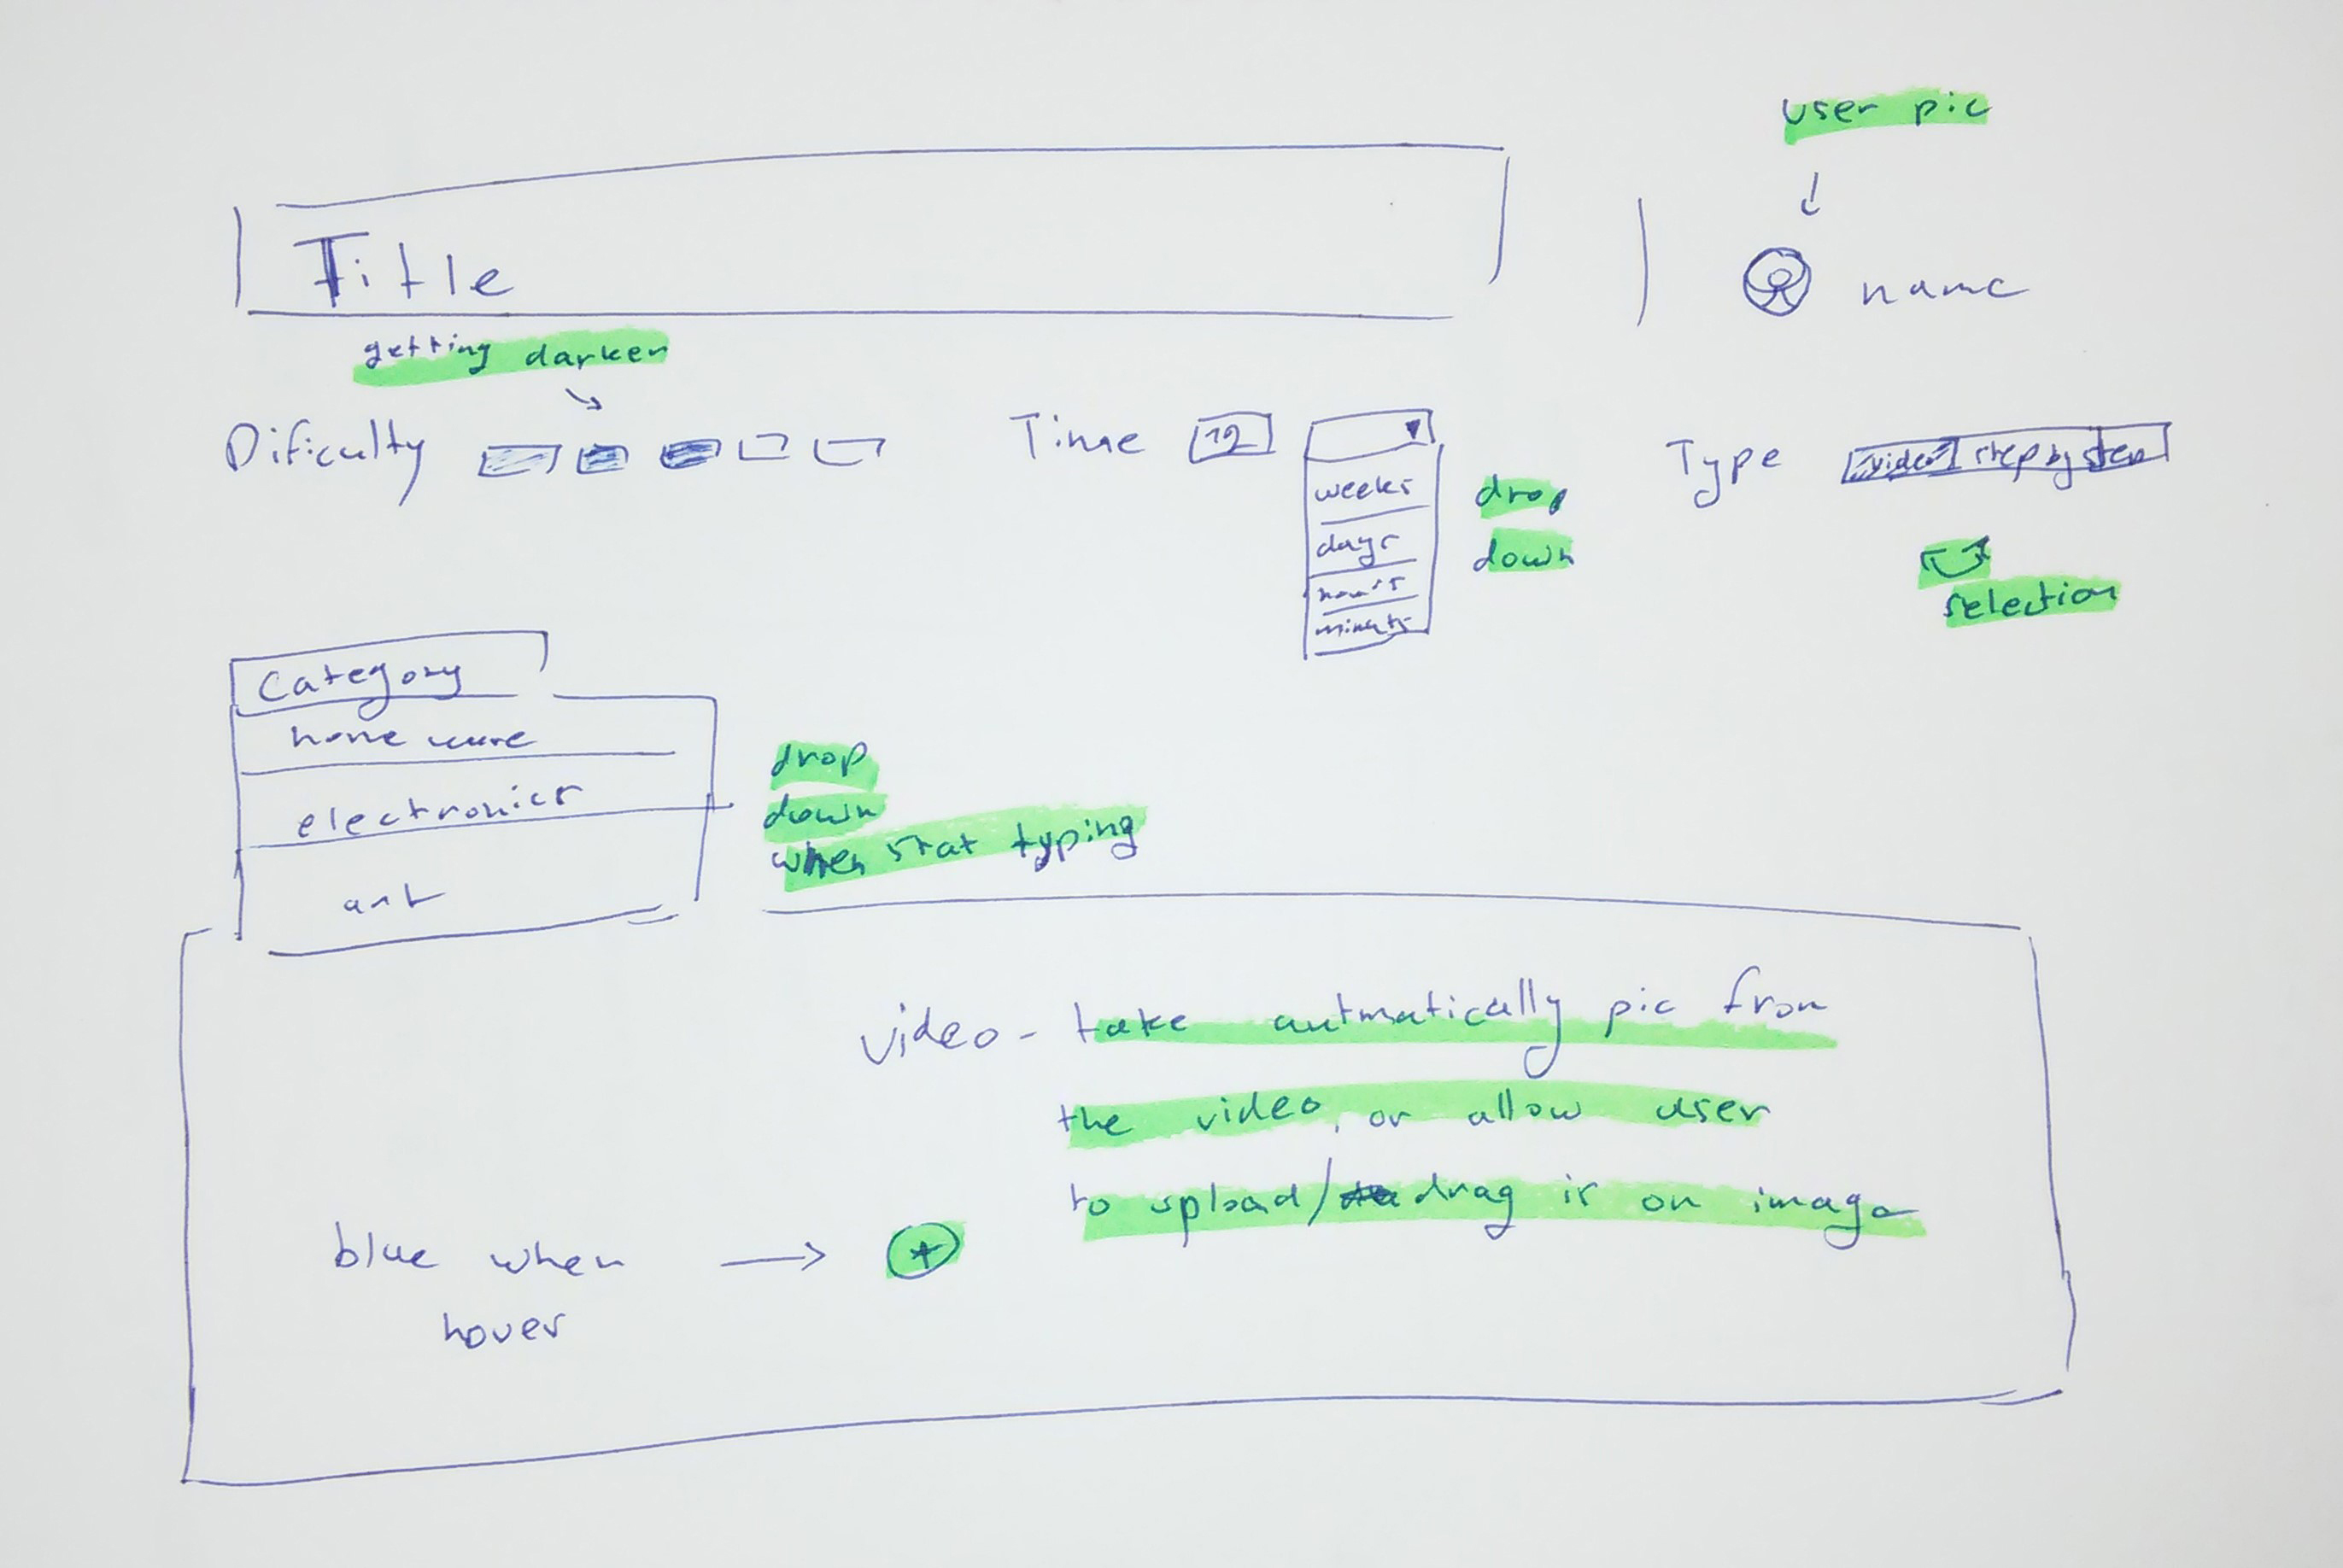 user pic
Title
name
getting darker
Dificulty
Time 12
weeks
days
hours
minuts
drop
down
Type video step by step
selection
Category
home
electronics
art
drop
down
when stat typing
video - take autmatically pic from
the video, or allow user
to upload/ drag is on image
blue when
hover
+